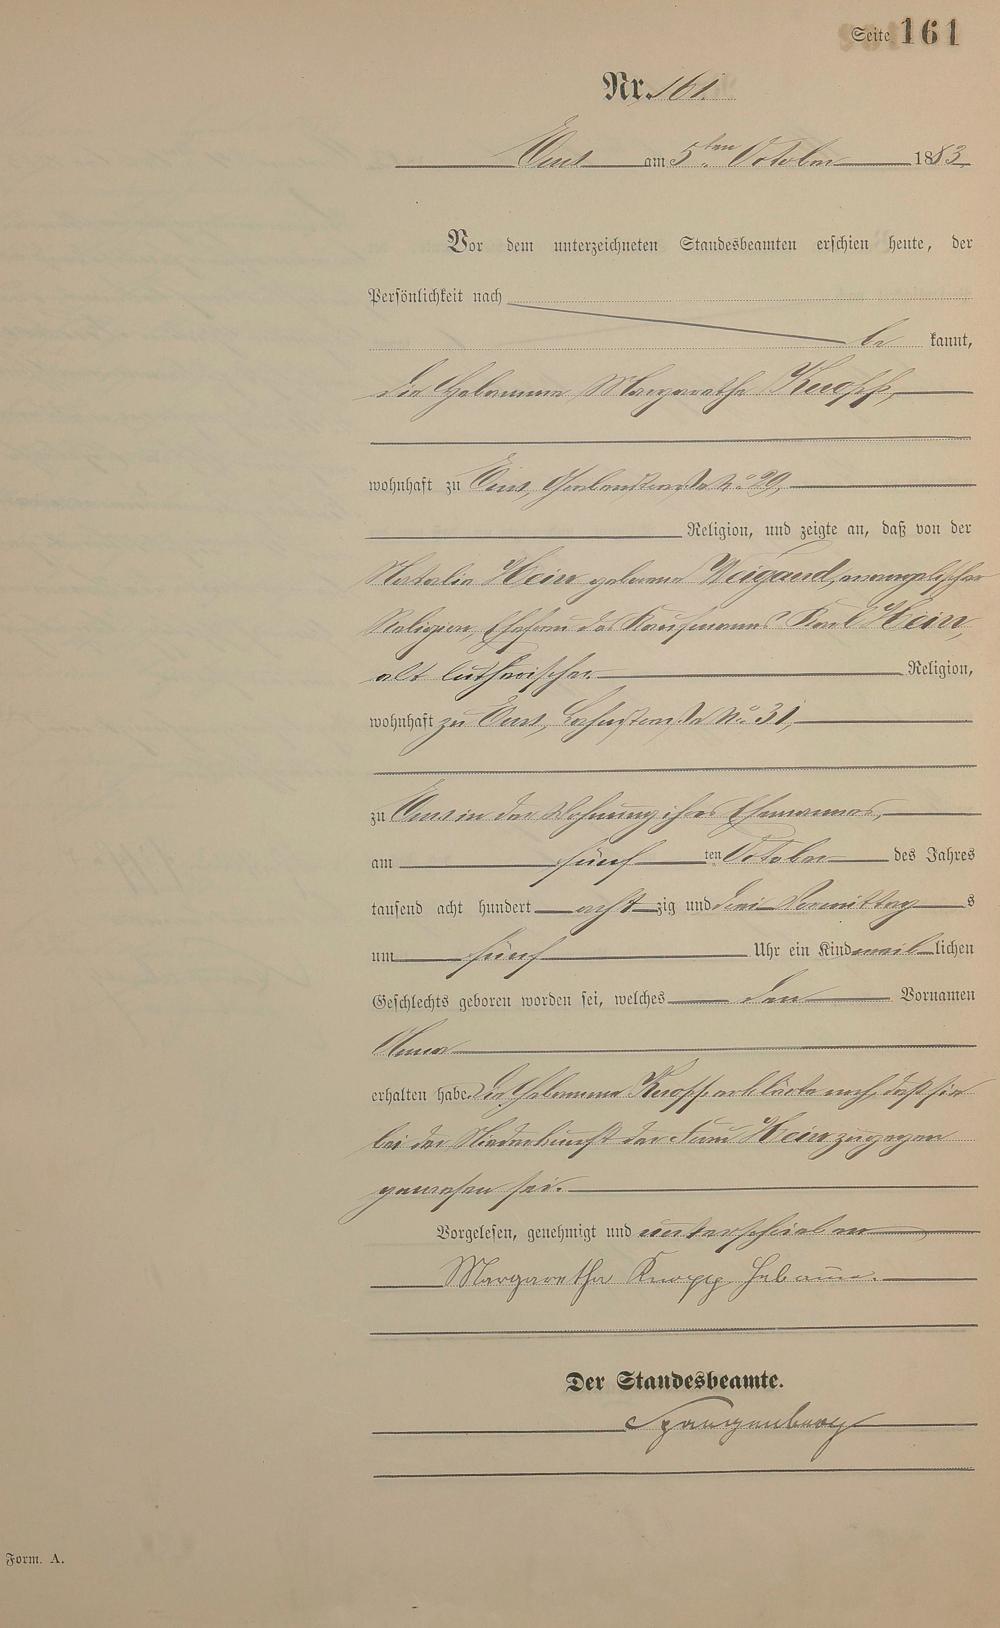 Seite 161
Nr. 161.
Ems am 5ten October 1883
Vor dem unterzeichneten Standesbeamten erschien heute, der
Persönlichkeit nach
be kannt,
die Hebamme Margarethe Knopp,
wohnhaft zu Ems, No 29,
Religion, und zeigte an, daß von der
Natalie Hein geborene Weigand, evangelischer
Religion, Ehefrau des Kaufmanns Karl Hein,
alt lutherischer Religion,
wohnhaft zu Ems, Lahnstraße No 31,
zu Ems in der Wohnung ihres Ehemannes,
am fünf ten October des Jahres
tausend acht hundert acht zig und drei Vormittag s
um fünf Uhr ein Kind weib lichen
Geschlechts geboren worden sei, welches den Vornamen
Anna
erhalten habe. Die Hebamme Knopp erklärte noch, daß sie
bei der Niederkunft der Frau Hein zugegen
gewesen sei.
Vorgelesen, genehmigt und unterschrieben
Margaretha Knopp Hebamme.
Der Standesbeamte.
Spangenberg
Form. A.